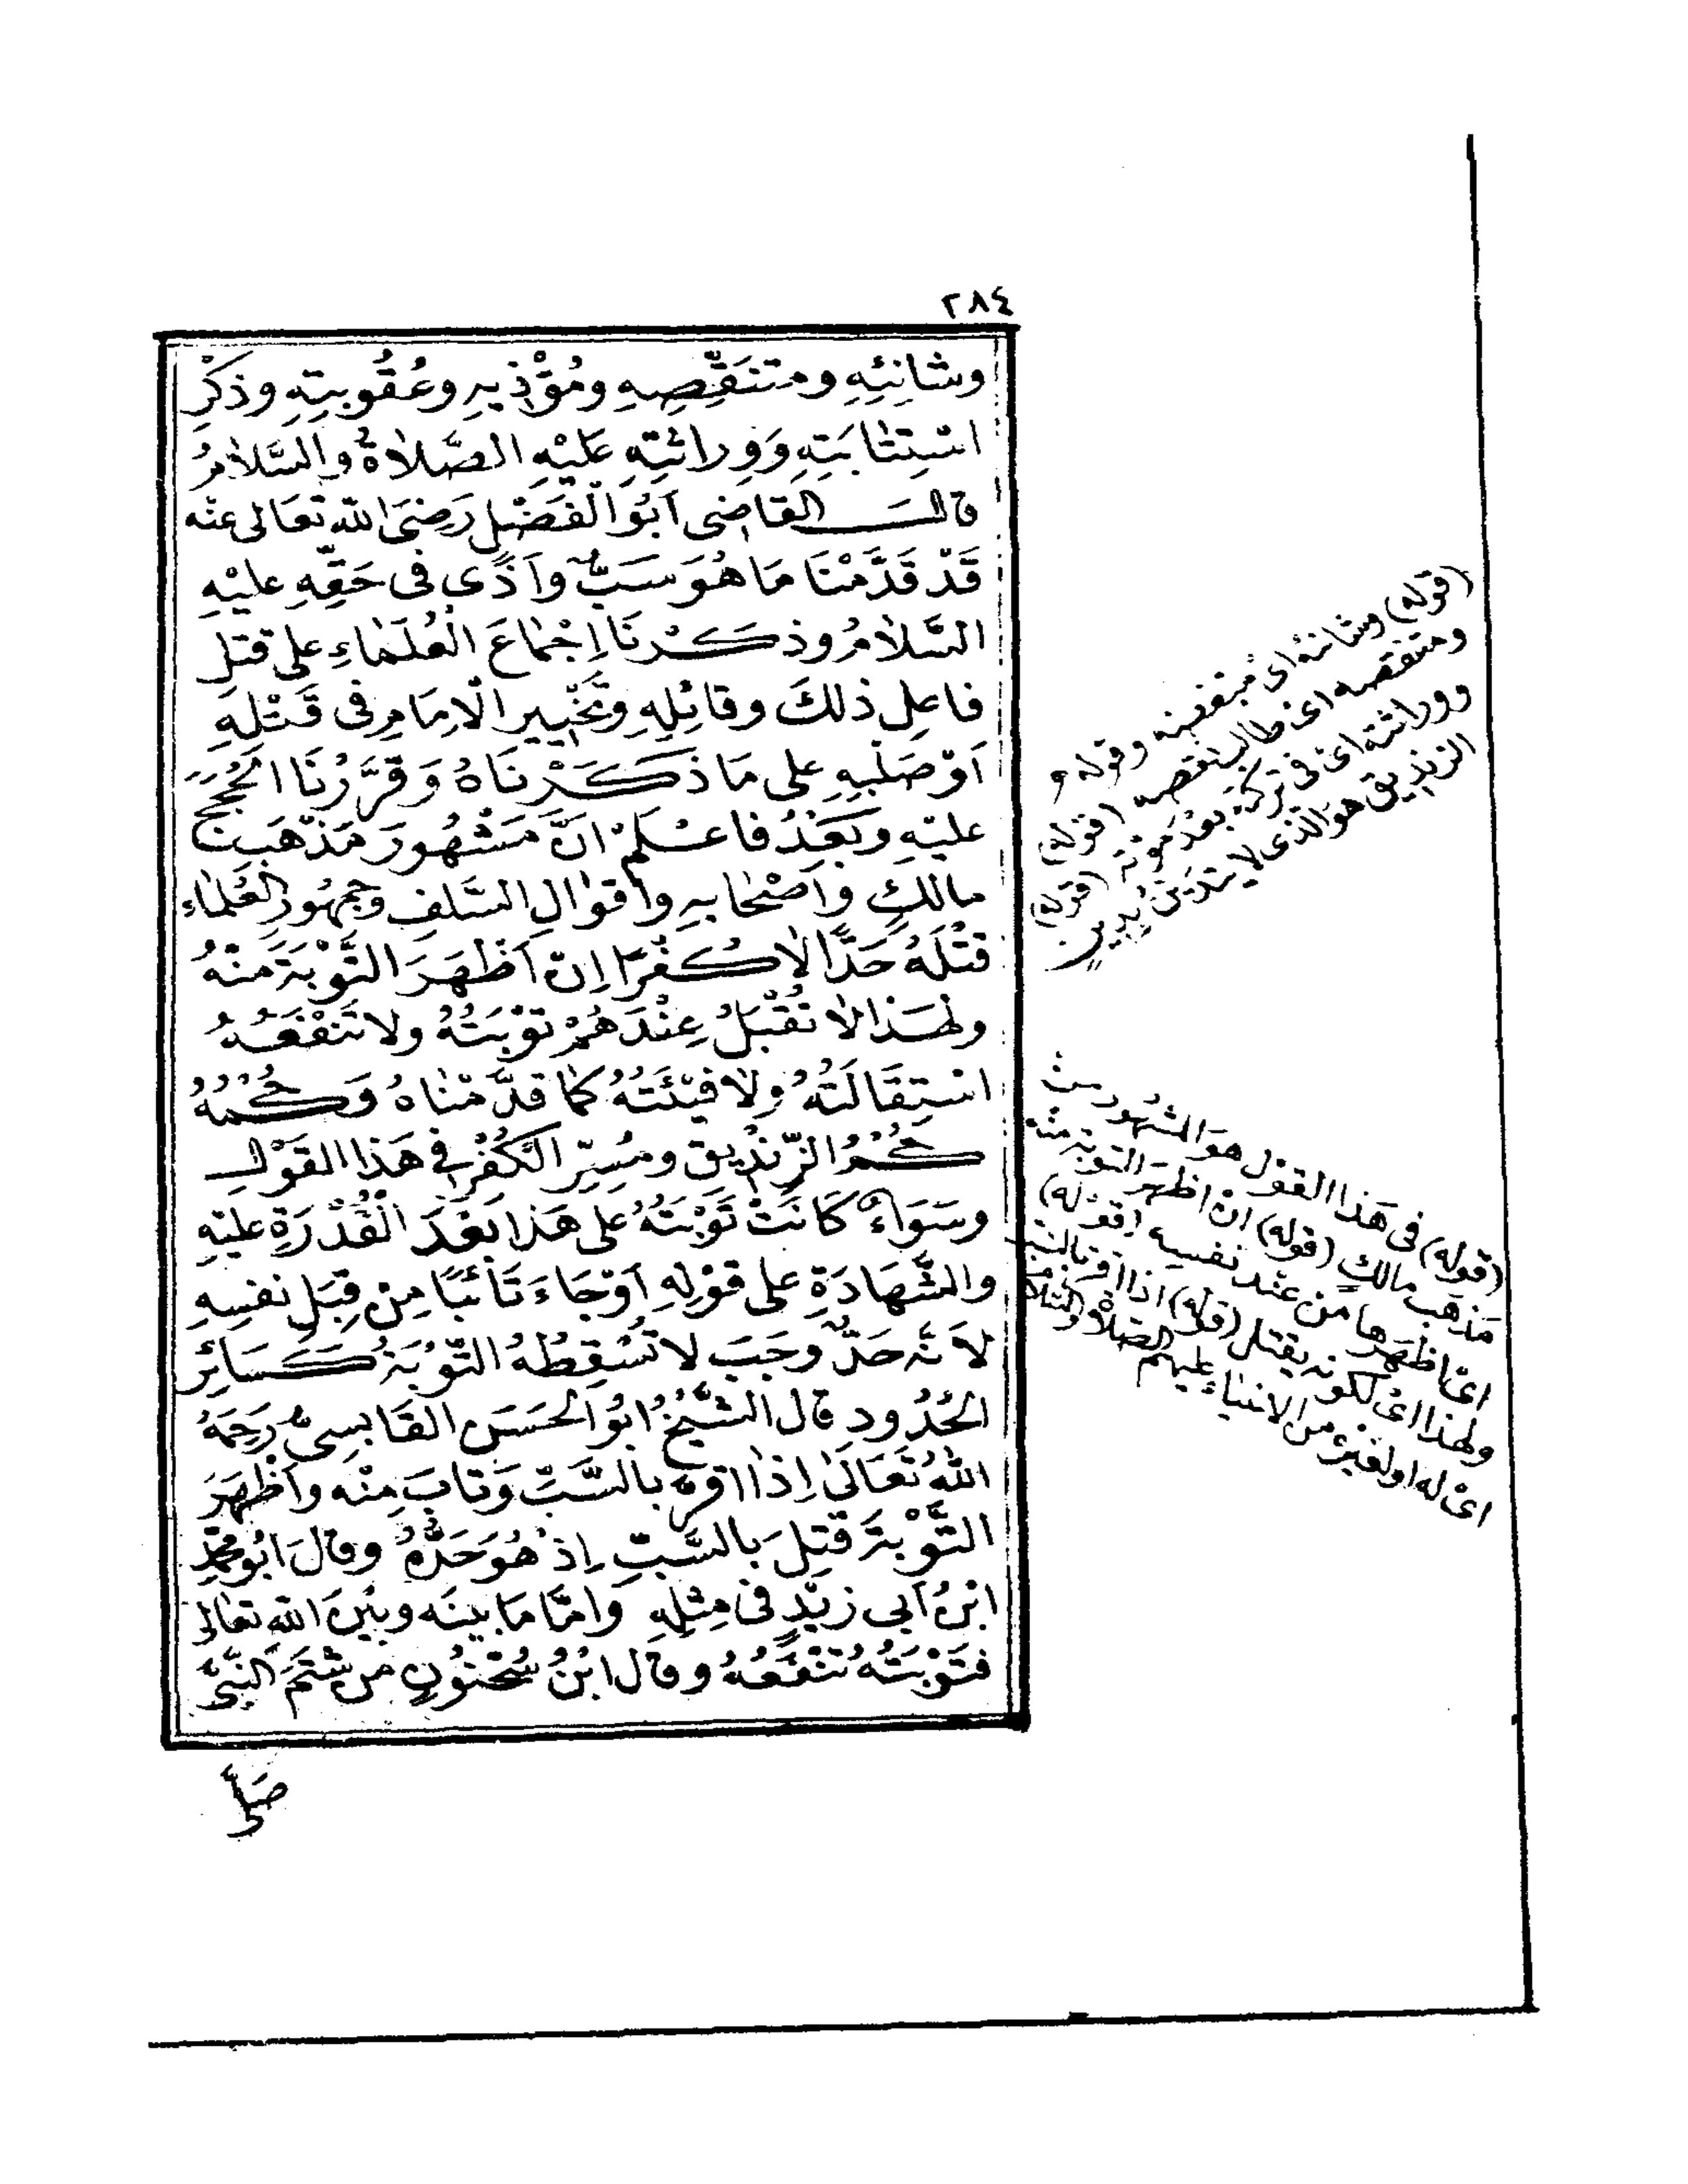 ٢٨٤
وشَانِئِهِ ومتنَقِّصِهِ ومُؤْذِيهِ وعُقُوبتِهِ وذكْرِ
اسْتِتَابَتِهِ وَوِراثتِهِ عَلَيْهِ الصَّلَاةُ والسَّلَامُ
قال القَاضِى اَبُو الْفَضْلِ رَضِىَ اللّٰه تعَالى عنْه
قَدْ قَدَّمْنَا مَا هُوَ سَبٌّ واَذًى فى حَقِّهِ عليْهِ
السَّلَامُ وذكَرْنَا اِجْمَاعَ الْعُلَمَاءِ على قتلِ
فاعِلِ ذلكَ وقائِلِهِ وتَخْيِيرِ الْاِمَامِ فى قَتْلِهِ
اَوْ صَلْبِهِ على مَا ذكَرْنَاهُ وَقَرَّرْنَا الْحُجَجَ
عليْهِ وبَعْدُ فاعْلَمْ انَّ مَشْهُورَ مَذْهَبِ
مالكٍ واَصْحَابِهِ واَقوَالِ السَّلفِ وجمهُورِ العُلمَاءِ
قتْلُهُ حَدًّا لَا كُفْرًا اِنْ اَظْهَرَ التَّوْبَةَ مِنْهُ
ولهٰذَا لَا تُقْبَلُ عِنْدَهُمْ توْبَتُهُ ولا تَنْفَعُهُ
اسْتِقَالَتُهُ ولَا فَيْئَتُهُ كمَا قدَّمْنَاهُ وَحُكْمُهُ
حُكْمُ الزِّنْدِيقِ ومُسِرِّ الْكُفْرِ فى هَذَا القَوْلِ
وسَوَاءٌ كَانَتْ تَوْبَتُهُ على هَذا بَعْدَ الْقُدْرَةِ عليْهِ
والشَّهَادَةِ على قوْلِهِ اَوْ جَاءَ تَائبًا مِنْ قِبَلِ نفسِهِ
لاَنَّه حَدٌّ وجَبَ لا تُسْقِطُهُ التَّوْبَةُ كَسَائِرِ
الحُدُودِ قال الشَّيْخُ ابُو الحَسَنِ القَابِسِىُّ رَحِمَهُ
اللّٰهُ تَعَالَى اِذَا اقرَّ بالسَّبِّ وَتابَ مِنْه واَظْهَرَ
التَّوْبَةَ قُتِلَ بالسَّبِّ اِذْ هُوَ حَدُّهُ وقالَ ابُو محمّدِ
ابْنُ اَبى زيْدٍ فى مِثْلِهِ وَامَّا مَا بينَه وبيْنَ اللّٰه تعَالى
فتَوْبَتُهُ تنْفَعُهُ وقال ابْنُ سُحْنُونٍ من شتَمَ النَّبِىَّ
صَلَّى
(قوله) وشانئه اى مبغضه وقوله و
ومتنقصه اى طالب نقصه (قوله)
ووراثته اى فى تركته بعد موته (قوله)
الزنديق هو الذى لا يتدين بدين
(قوله) فى هذا القول هو المشهور من
مذهب مالك (قوله) ان اظهر التوبة منه
اى اظهرها من عند نفسه (قوله)
ولهذا اى لكونه يقتل (قوله) اذا اقر بالسب
اى له او لغيره من الانبياء عليهم الصلاة والسلام